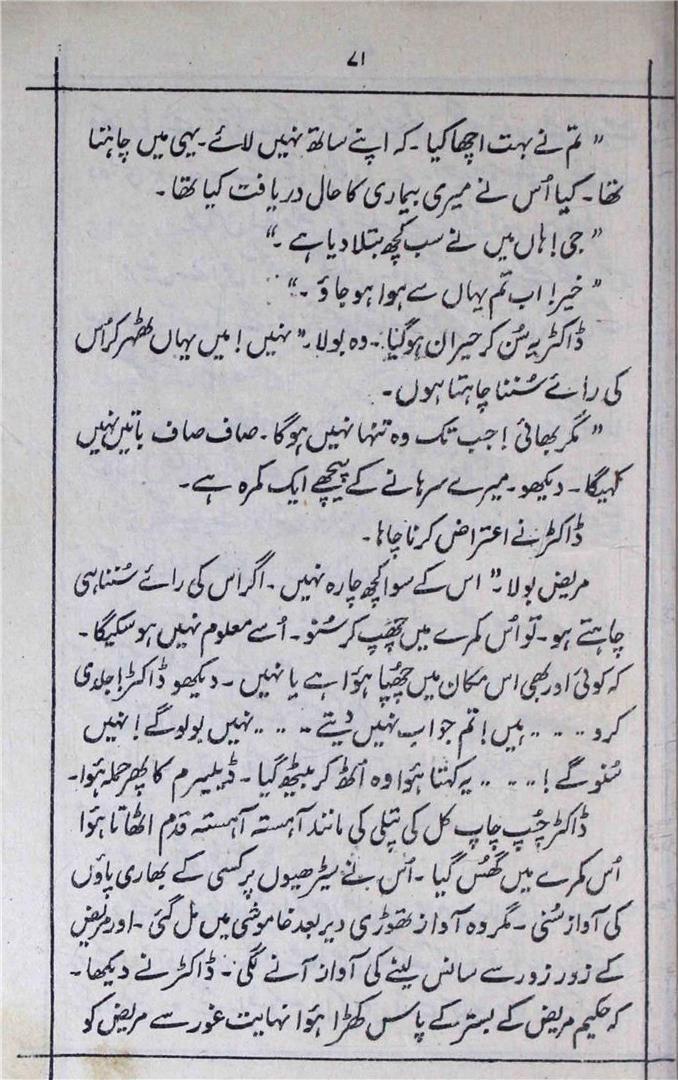 ۷۱
” تم نے بہت اچھا کیا۔ کہ اپنے ساتھ نہیں لائے۔ یہی میں چاہتا
تھا۔ کیا اُس نے میری بیماری کا حال دریافت کیا تھا۔
” جی! ہاں میں نے سب کچھ بتلا دیا ہے ۔“
” خیر! اب تم یہاں سے ہوا ہو جاؤ ۔“
ڈاکٹر یہ سُن کر حیران ہوگیا۔ وہ بولا۔” نہیں! میں یہاں ٹھہر کر اُس
کی رائے سُننا چاہتا ہوں۔
” مگر بھائی! جب تک وہ تنہا نہیں ہوگا۔ صاف صاف باتیں نہیں
کہیگا۔ دیکھو۔ میرے سرہانے کے پیچھے ایک کمرہ ہے۔
ڈاکٹر نے اعتراض کرنا چاہا۔
مریض بولا۔” اس کے سوا کچھ چارہ نہیں۔ اگر اس کی رائے سُننا ہی
چاہتے ہو۔ تو اُس کمرے میں چھپ کر سُنو۔ اُسے معلوم نہیں ہو سکیگا۔
کہ کوئی اور بھی اس مکان میں چھُپا ہوُا ہے یا نہیں۔ دیکھو ڈاکٹر! جلدی
کرو ۔ ۔ ۔ ۔ ہیں! تم جواب نہیں دیتے ۔ ۔ ۔ ۔ نہیں بولو گے! نہیں
سُنو گے! ۔ ۔ ۔ ۔ یہ کہتا ہوُا وہ اُٹھ کر بیٹھ گیا۔ ڈیلیرم کا پھر حملہ ہوُا۔
ڈاکٹر چُپ چاپ کل کی پتلی کی مانند آہستہ آہستہ قدم اٹھاتا ہوُا
اُس کمرے میں گھُس گیا۔ اُس نے سیڑھیوں پر کسی کے بھاری پاؤں
کی آواز سُنی۔ مگر وہ آواز تھوڑی دیر بعد خاموشی میں مل گئی۔ اور مریض
کے زور زور سے سانس لینے کی آواز آنے لگی۔ ڈاکٹر نے دیکھا۔
کہ حکیم مریض کے بستر کے پاس کھڑا ہوُا نہایت غور سے مریض کو